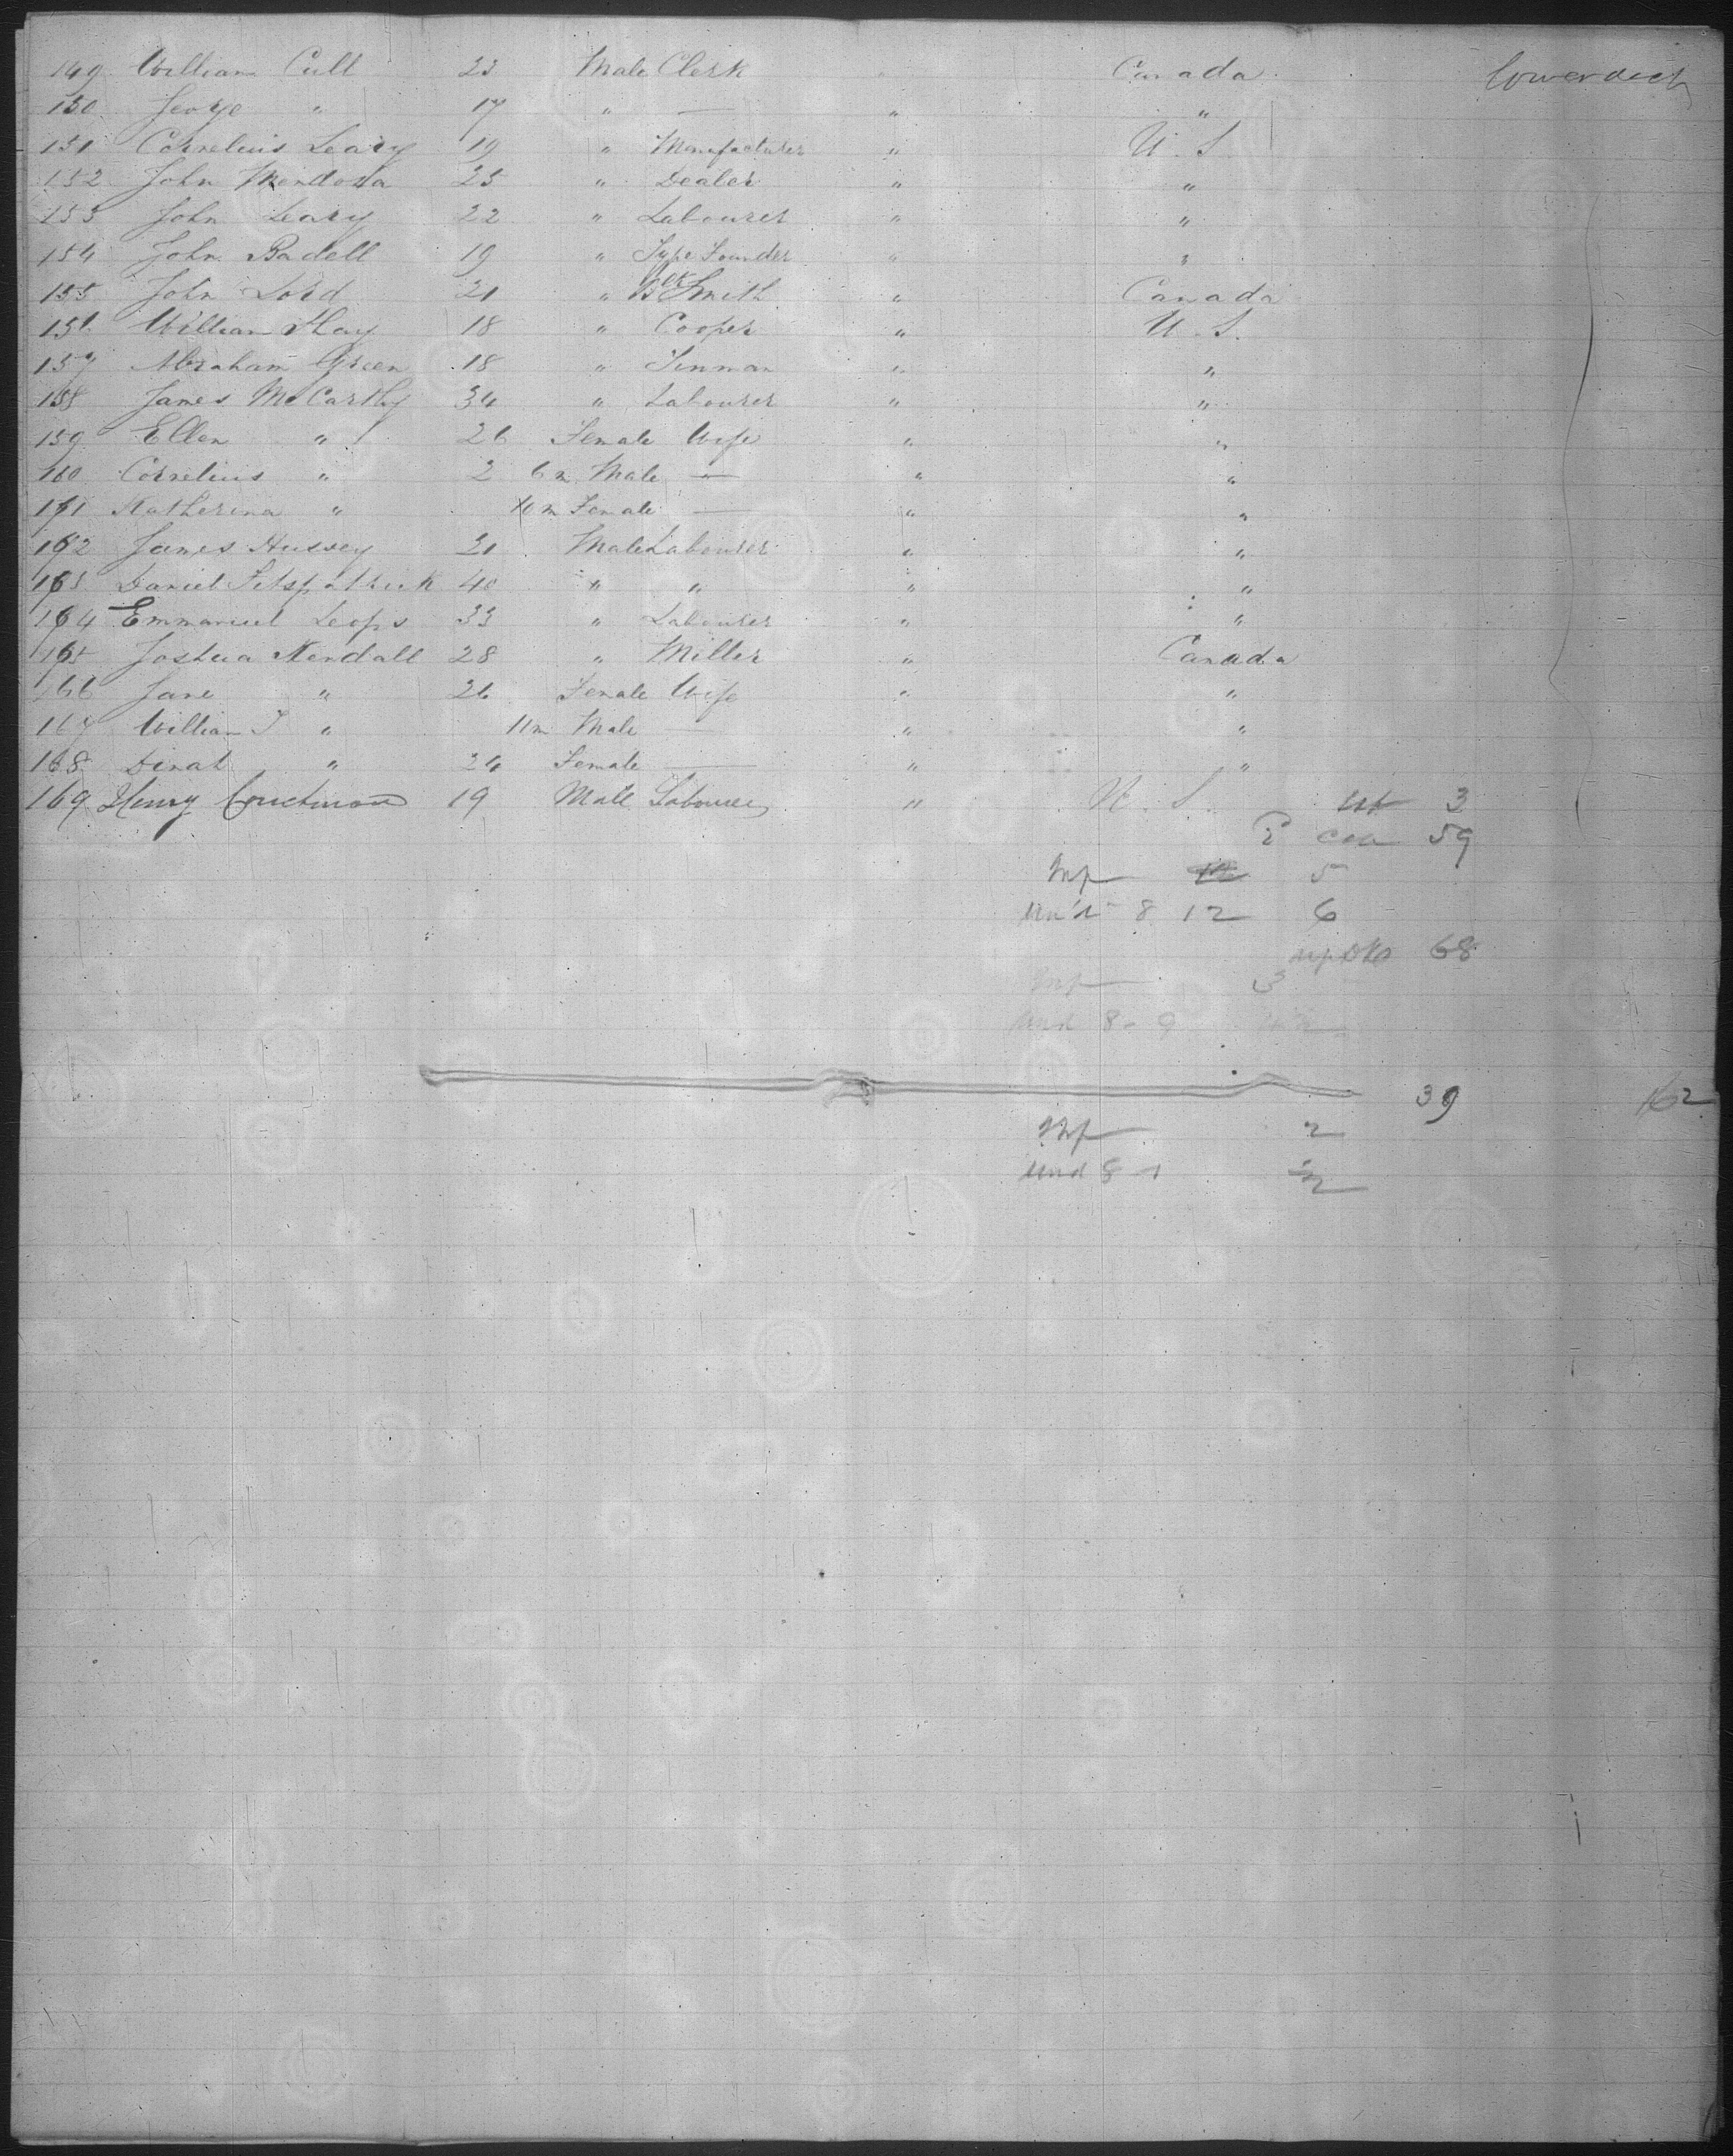 149 William Cull 23 Male Clerk " Canada lowerdeck
150 George " 17 " — " "
151 Cornelius Leary 19 " Manufacturer " U.S.
152 John Mendosa 25 " Dealer " "
153 John Leary 22 " Labourer " "
154 John Badell 19 " Type Founder " "
155 John Lord 21 " Blk Smith " Canada
156 William Hay 18 " Cooper " U.S.
157 Abraham Green 18 " Tinman " "
158 James McCarthy 34 " Labourer " "
159 Ellen " 26 Female Wife " "
160 Cornelius " 2 6m Male — " "
161 Katherina " 10m Female — " "
162 James Hussey 21 Male Labourer " "
163 Daniel Fitspatrick 40 " " " "
164 Emmanuel Leops 33 " Labourer " "
165 Joshua Kendall 28 " Miller " Canada
166 Jane " 26 Female Wife " "
167 William J " 11m Male — " "
168 Dinah " 24 Female — " "
169 Henry 19 Male Labourer " U.S. 3
59
Inf 5
8 12 6
68
Inf 3
und 8 - 9
39 162
Inf 2
und 8 - 1